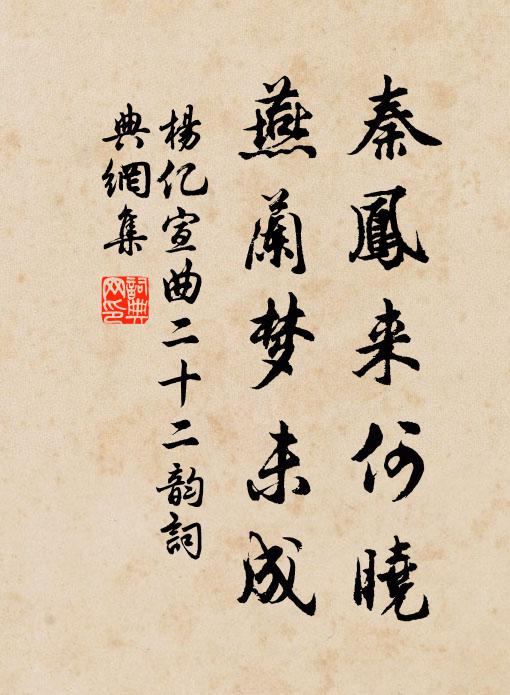 秦鳳来何曉
燕蘭梦未成
楊亿宣曲二十二韵詞
典網集
詞典
网印